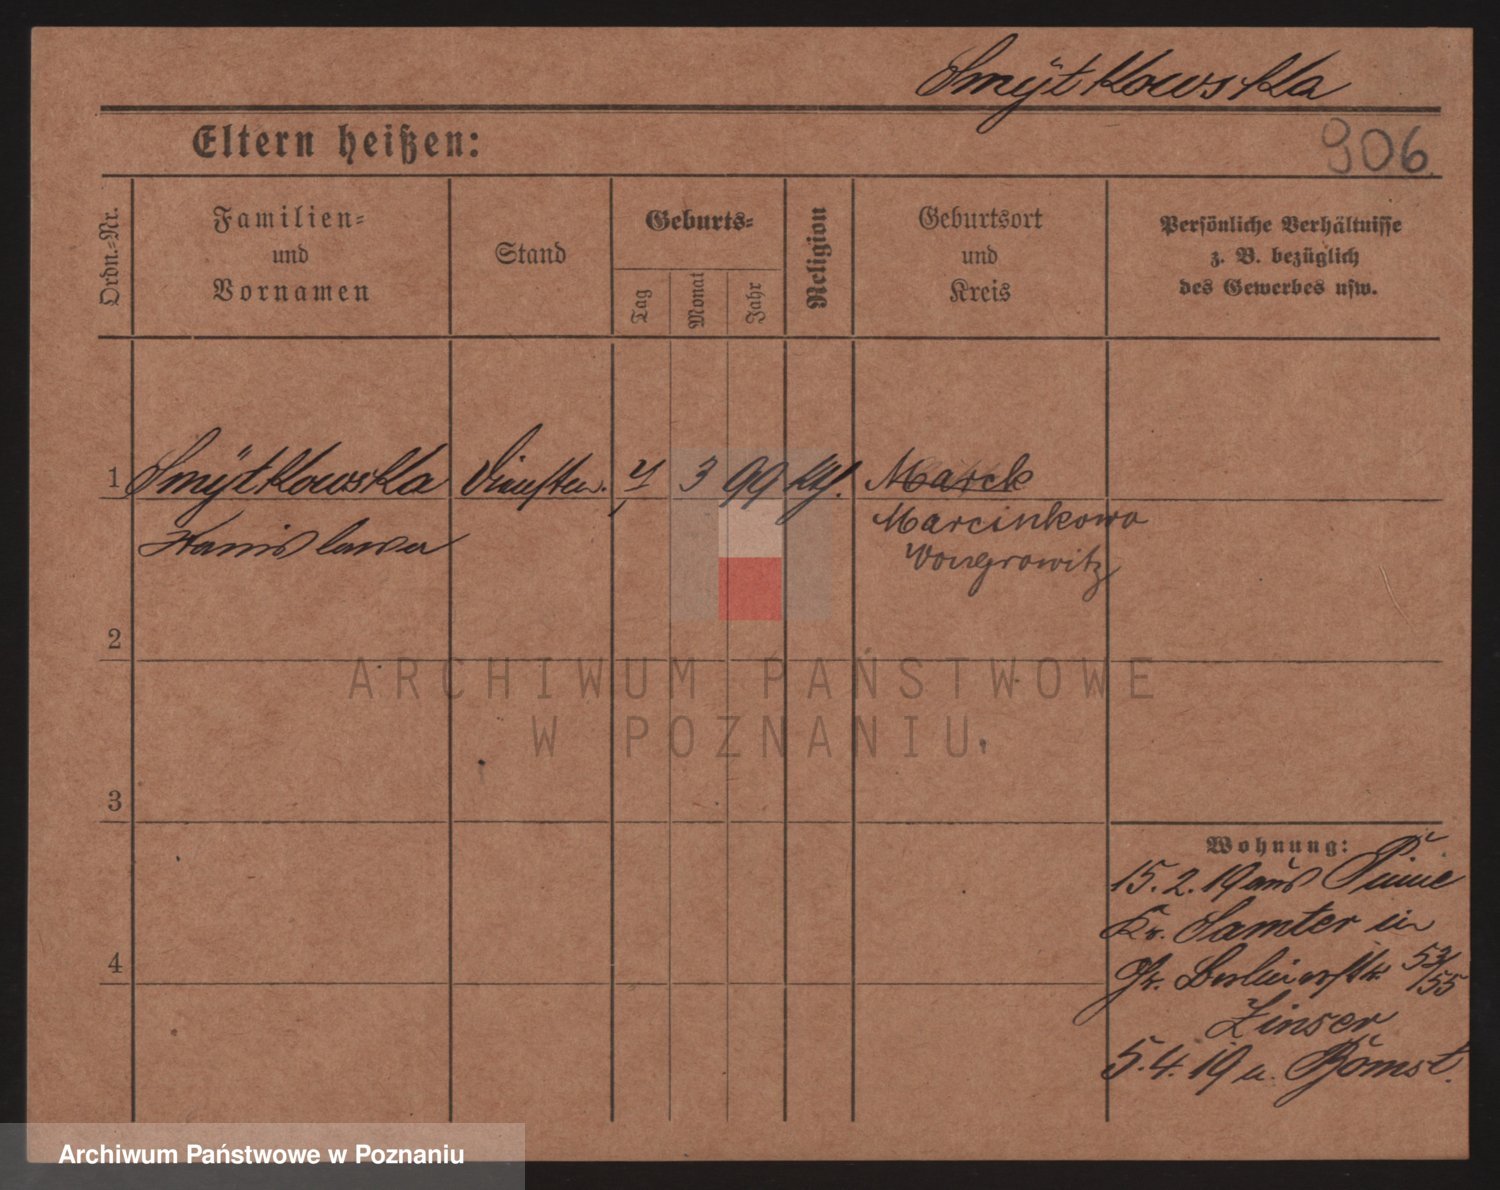 Smÿtkowska
Eltern heißen:
906
Ordn.-Nr.
Familien-
und
Vornamen
Stand
Geburts-
Tag
Monat
Jahr
Religion
Geburtsort
und
Kreis
Persönliche Verhältnisse
z. B. bezüglich
des Gewerbes usw.
1 Smÿtkowska 3 99 Marck
Stanislawa Marcinkowo
Wongrowitz
2
ARCHIWUM PAŃSTWOWE
W POZNANIU
3
Wohnung:
15.2.19 aus Pinne
Kr. Samter in
Gr. Berlinerstr. 53/55
Zinser
5.4.19 n. Bomst.
4
Archiwum Państwowe w Poznaniu